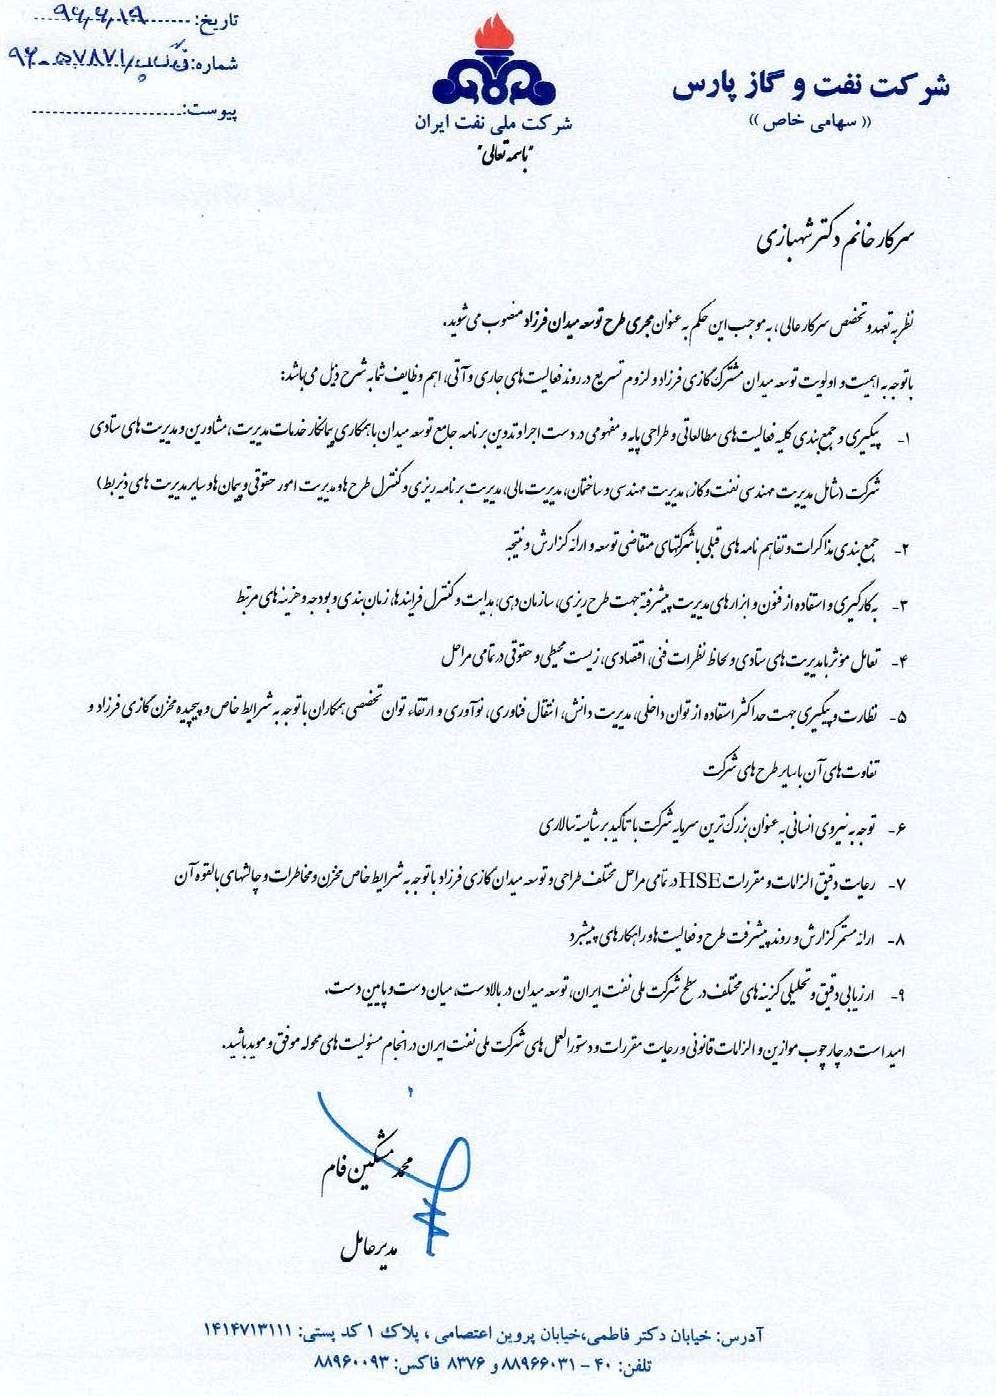 تاریخ: ۹۶,۶,۱۹
شماره: ۹۶-۵۷۸۷۱
پیوست:
شرکت ملی نفت ایران
"باسمه تعالی"
شرکت نفت و گاز پارس
(( سهامی خاص ))
سرکار خانم دکتر شهبازی
نظر به تعهد و تخصص سرکار عالی، به موجب این حکم به عنوان مجری طرح توسعه میدان فرزاد منصوب می شوید.
با توجه به اهمیت و اولویت توسعه میدان مشترک گازی فرزاد و لزوم تسریع در روند فعالیت های جاری و آتی، اهم وظایف شما به شرح ذیل می باشد:
۱- پیگیری و جمع بندی کلیه فعالیت های مطالعاتی و طراحی پایه و مفهومی در دست اجرا و تدوین برنامه جامع توسعه میدان با همکاری پیمانکار خدمات مدیریت، مشاورین و مدیریت های ستادی
شرکت (شامل مدیریت مهندسی نفت و گاز، مدیریت مهندسی و ساختمان، مدیریت مالی، مدیریت برنامه ریزی و کنترل طرح ها و مدیریت امور حقوقی و پیمان ها و سایر مدیریت های ذیربط)
۲- جمع بندی مذاکرات و تفاهم نامه های قبلی با شرکتهای متقاضی توسعه و ارائه گزارش و نتیجه
۳- به کارگیری و استفاده از فنون و ابزارهای مدیریت پیشرفته جهت طرح ریزی، سازمان دهی، هدایت و کنترل فرایندها، زمان بندی و بودجه و هزینه های مرتبط
۴- تعامل مؤثر با مدیریت های ستادی و لحاظ نظرات فنی، اقتصادی، زیست محیطی و حقوقی در تمامی مراحل
۵- نظارت و پیگیری جهت حداکثر استفاده از توان داخلی، مدیریت دانش، انتقال فناوری، نوآوری و ارتقاء توان تخصصی همکاران با توجه به شرایط خاص و پیچیده مخزن گازی فرزاد و
تفاوت های آن با سایر طرح های شرکت
۶- توجه به نیروی انسانی به عنوان بزرگ ترین سرمایه شرکت با تاکید بر شایسته سالاری
۷- رعایت دقیق الزامات و مقررات HSE در تمامی مراحل مختلف طراحی و توسعه میدان گازی فرزاد با توجه به شرایط خاص مخزن و مخاطرات و چالشهای بالقوه آن
۸- ارائه مستمر گزارش و روند پیشرفت طرح و فعالیت ها و راهکارهای پیشبرد
۹- ارزیابی دقیق و تحلیلی گزینه های مختلف در سطح شرکت ملی نفت ایران، توسعه میدان در بالادست، میان دست و پایین دست.
امید است در چارچوب موازین و الزامات قانونی و رعایت مقررات و دستورالعمل های شرکت ملی نفت ایران در انجام مسئولیت های محوله موفق و موید باشید.
محمد مشکین فام
مدیر عامل
آدرس: خیابان دکتر فاطمی،خیابان پروین اعتصامی ، پلاک ۱ کد پستی: ۱۴۱۴۷۱۳۱۱۱
تلفن: ۴۰ - ۸۸۹۶۶۰۳۱ و ۸۳۷۶ فاکس: ۸۸۹۶۰۰۹۳